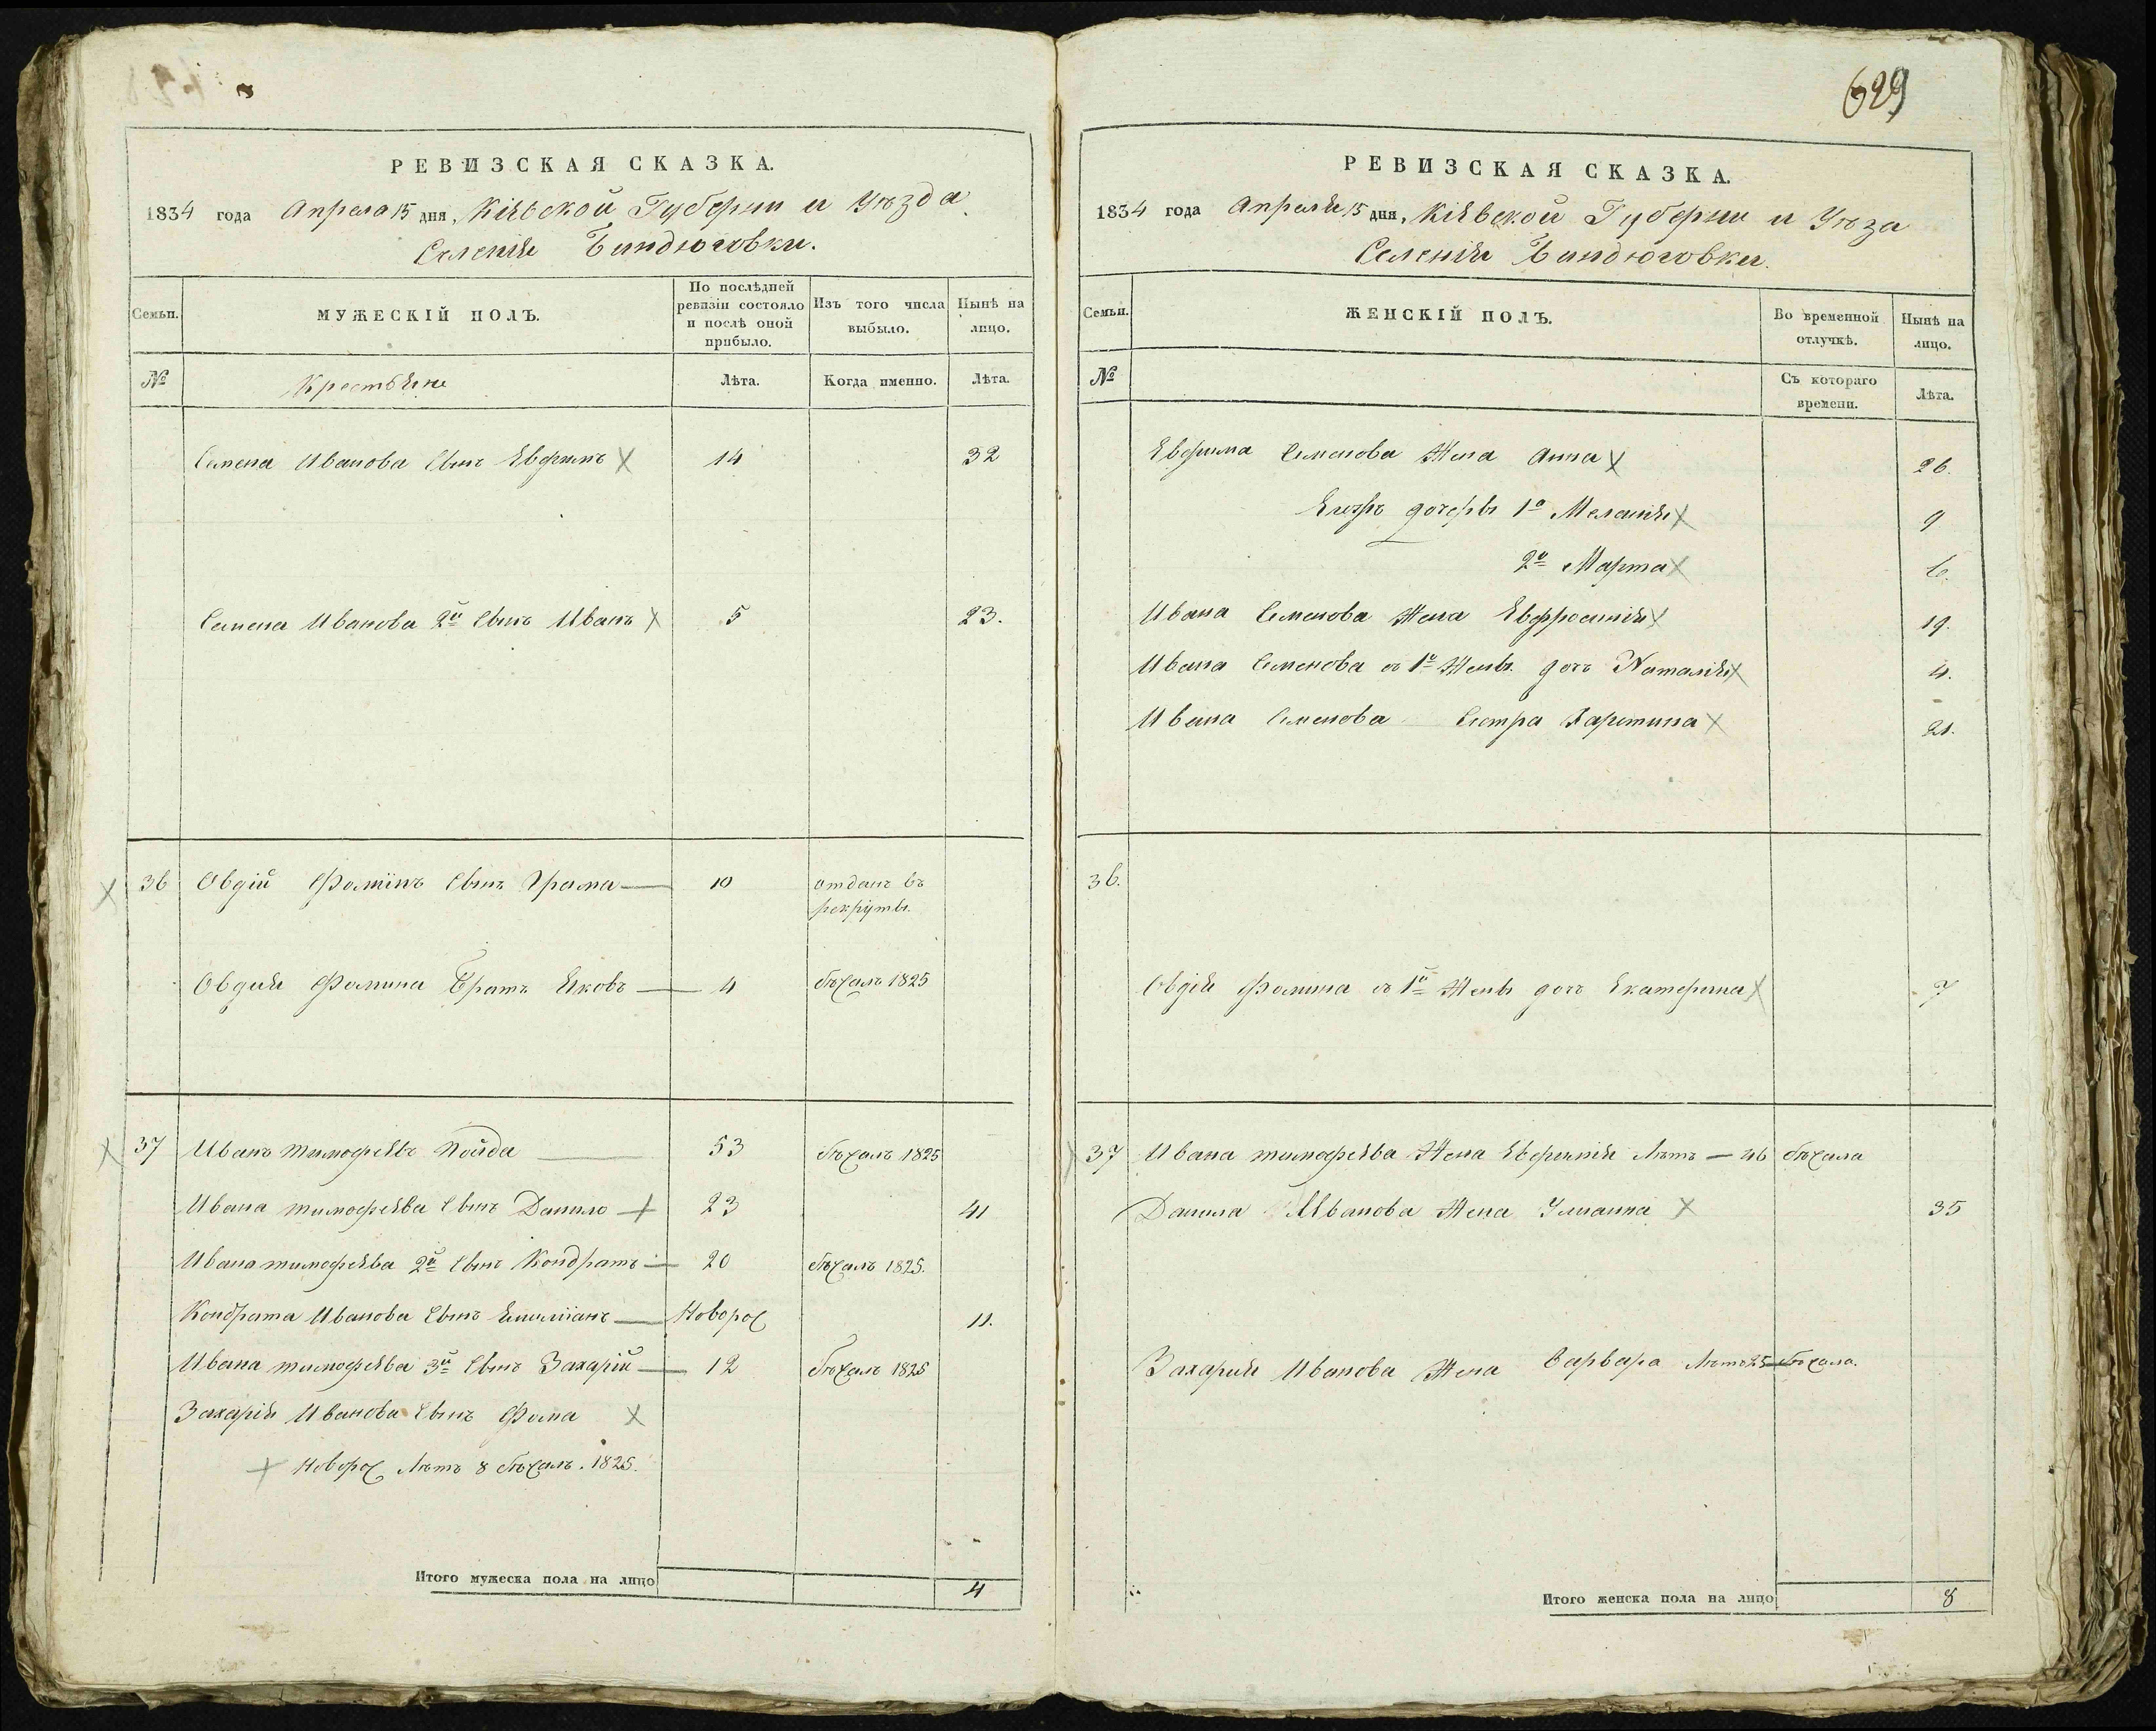 629
РЕВИЗСКАЯ СКАЗКА.
1834 года Апреля 15 дня, Кіевской Губерни и Уѣзда
Селенія Биндюговки.
Семьи.
МУЖЕСКІЙ ПОЛЪ.
По послѣдней
ревизіи состояло
и послѣ оной
прибыло.
Изъ того числа
выбыло.
Нынѣ на
лицо.
№
Крестьяне
Лѣта.
Когда именно.
Лѣта.
Семена Иванова Сынъ Евфимъ 14 32
Семена Иванова 2й Сынъ Иванъ 5 23.
36 Овдій Фоминъ Сынъ 10 отданъ въ
рекруты.
Овдия Фомина Братъ Яковъ 4 бѣжалъ 1825
37 Иванъ тимофѣевъ Пойда 53 бѣжалъ 1825
Ивана тимофѣева Сынъ Данило 23 41
Ивана тимофѣева 2й Сынъ Кондратъ 20 бѣжалъ 1825.
Кондрата Иванова Сынъ Емилианъ Новорож 11.
Ивана тимофѣева 3й Сынъ Захарій 12 бѣжалъ 1825
Захарія Иванова Сынъ Фома
Новорож Лѣтъ 8 бѣжалъ. 1825.
Итого мужеска пола на лицо 4
РЕВИЗСКАЯ СКАЗКА.
1834 года Апреля 15 дня, Кіевской Губерни и Уѣза
Селенія Биндюговки.
Семьи.
ЖЕНСКІЙ ПОЛЪ.
Во временной
отлучкѣ.
Нынѣ на
лицо.
№
Съ котораго
времени.
Лѣта.
Евфима Семенова Жена Анна 26.
дочеры 1я Меланія 9
2я Марта 6.
Ивана Семенова Жена Евфросинія 19.
Ивана Семенова съ 1й Жены доч Наталія 4.
Ивана Семенова Сестра Харитина 21.
36.
Овдія Фомина съ 1й Жены доч Екатерина 7
37 Ивана тимофѣева Жена Евфимія Лѣтъ 46 бѣжала
Данила Иванова Жена Улианна 35
Захария Иванова Жена Варвара Лѣтъ 25 бѣжала.
Итого женска пола на лицо 8